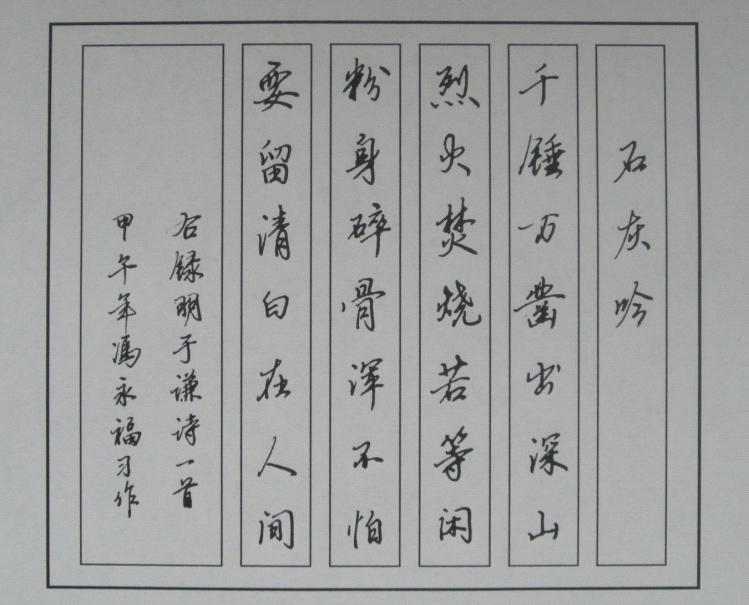 石灰吟
千锤万凿出深山
烈火焚烧若等闲
粉身碎骨浑不怕
要留清白在人间
右録明于谦诗一首
甲午年冯永福习作